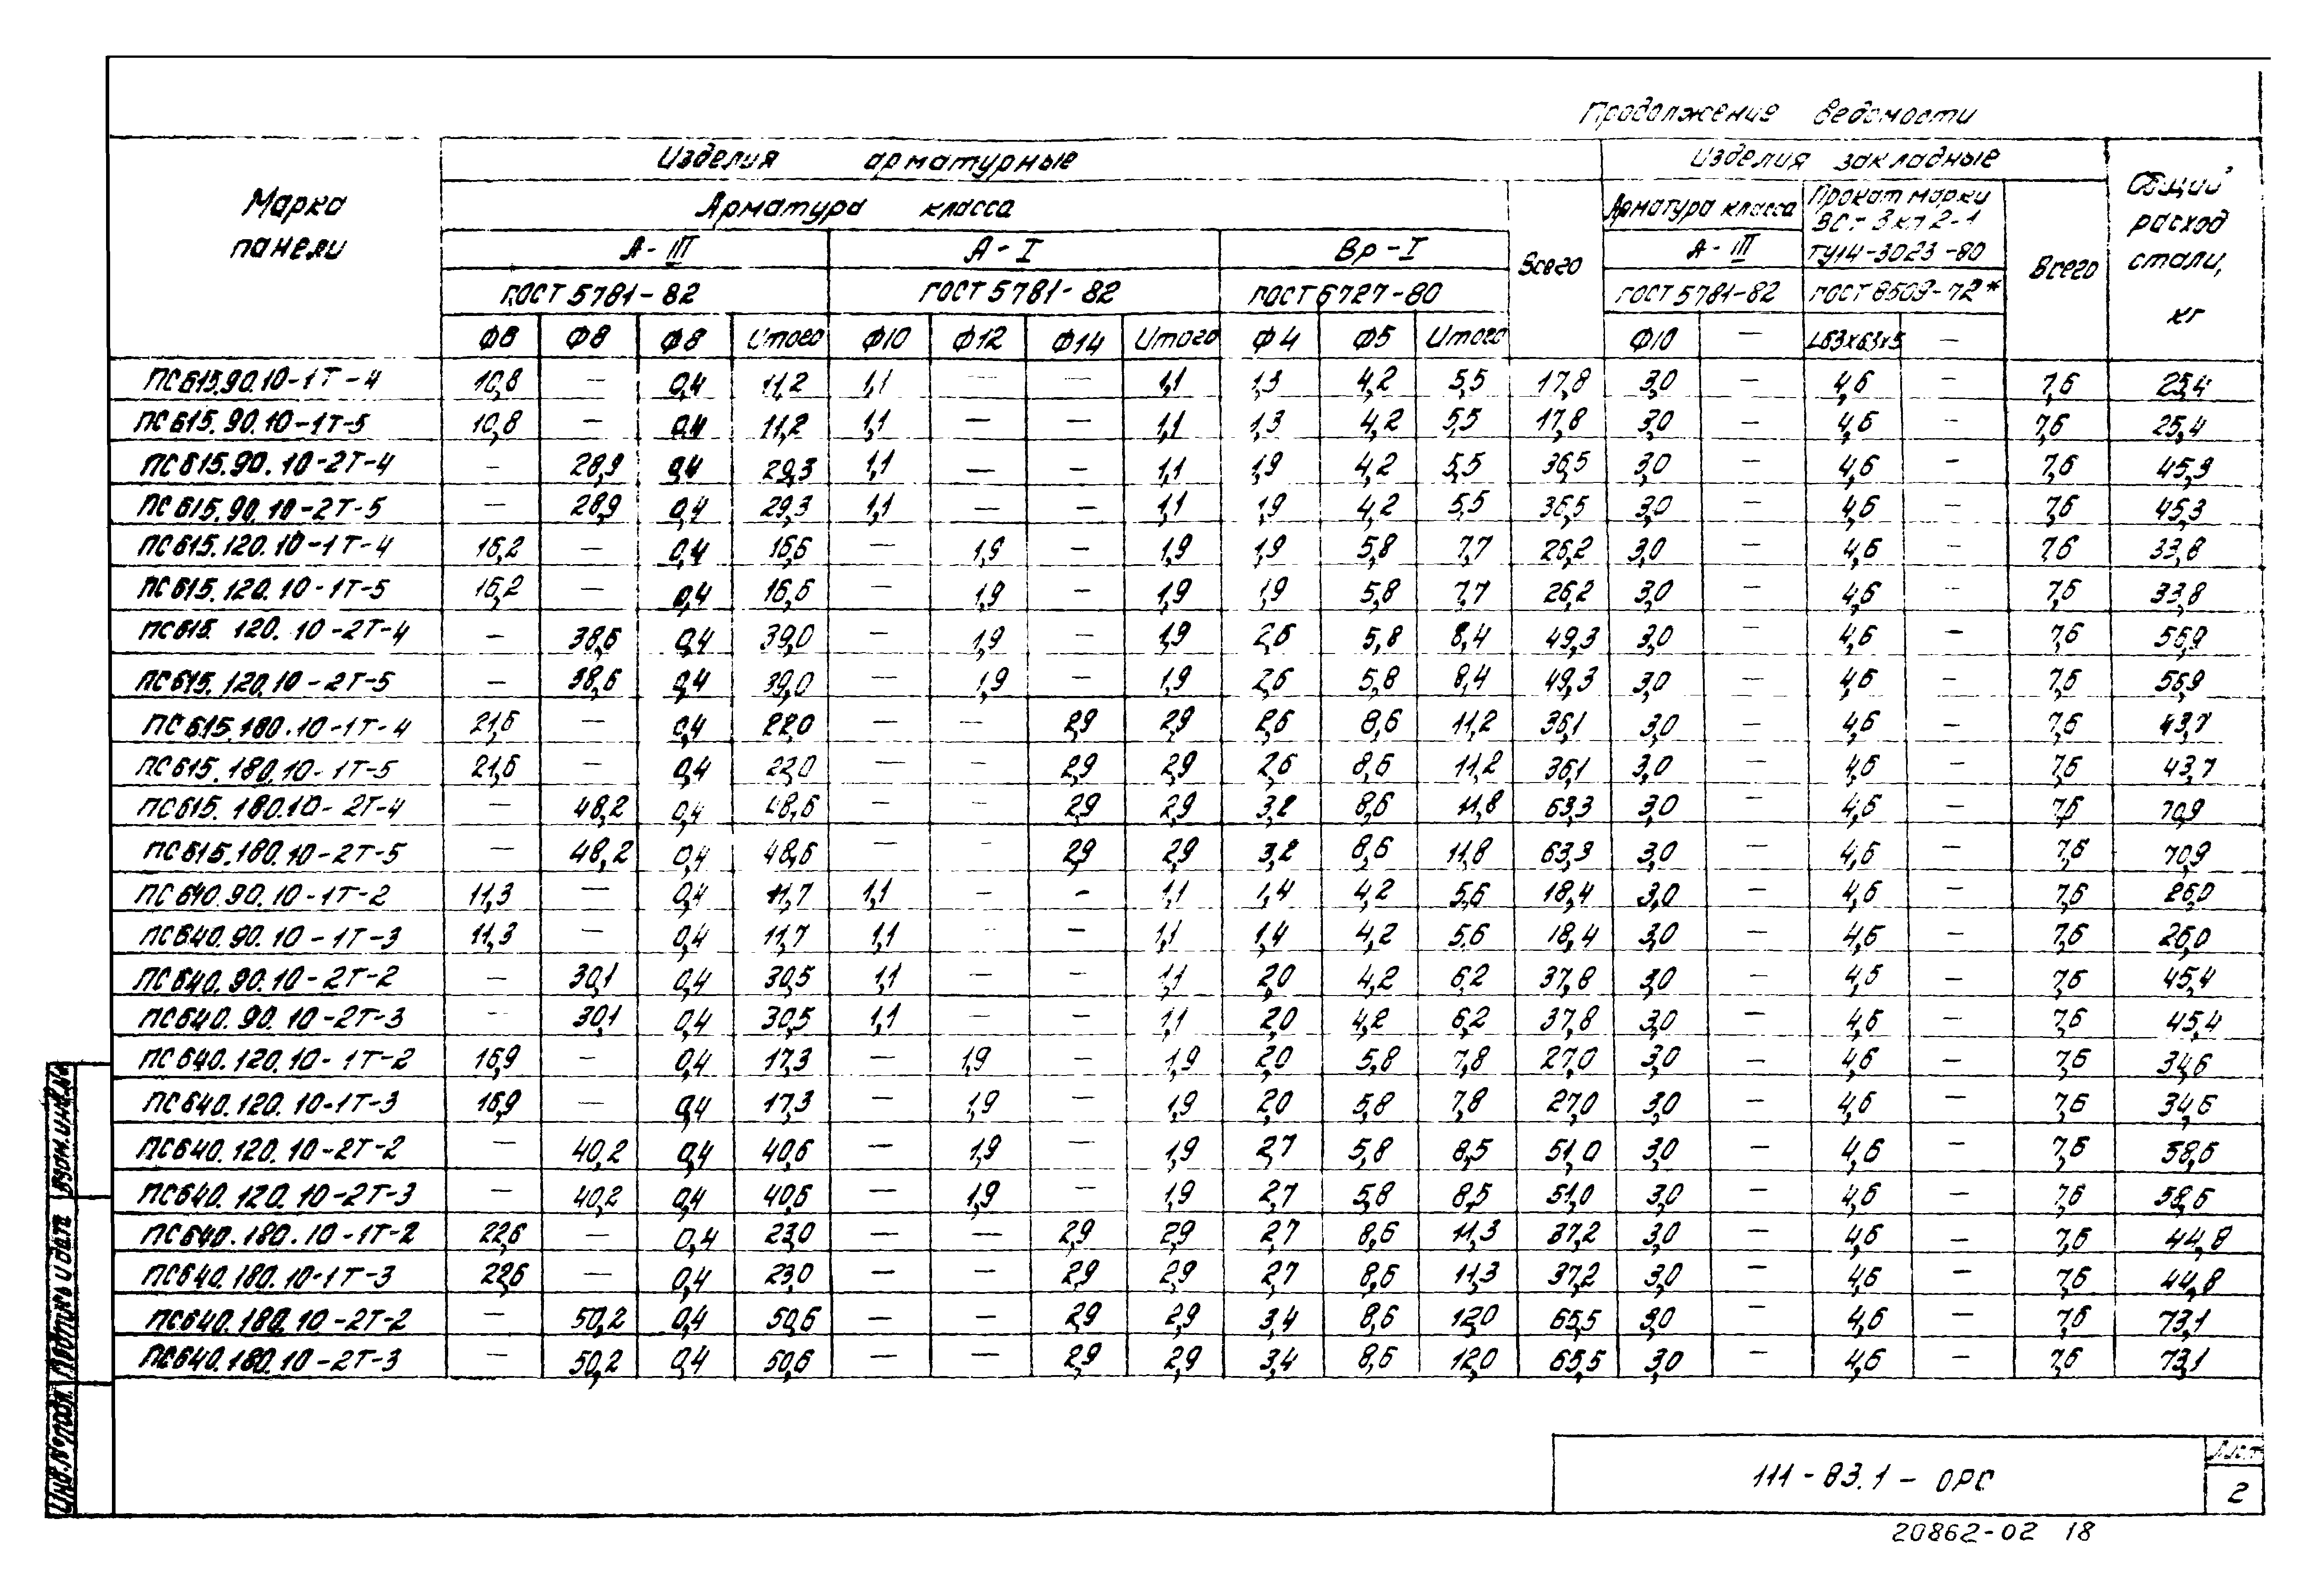 Продолжение ведомости
Марка панели
Изделия арматурные
Изделия закладные
Общий расход стали, кг
Арматура класса
Всего
Арматура класса
Прокат марки ВСт 3кп2-1
ТУ14-3023-80
Всего
А-III
А-I
Вр-I
А-III
ГОСТ 5781-82
ГОСТ 5781-82
ГОСТ 6727-80
ГОСТ 5781-82
ГОСТ 8509-72*
Ф6 Ф8 Ф8 Итого Ф10 Ф12 Ф14 Итого Ф4 Ф5 Итого Ф10 — L63х63х5 —
ПС615.90.10-1Т-4 10,8 — 0,4 11,2 1,1 — — 1,1 1,3 4,2 5,5 17,8 3,0 — 4,6 — 7,6 25,4
ПС615.90.10-1Т-5 10,8 — 0,4 11,2 1,1 — — 1,1 1,3 4,2 5,5 17,8 3,0 — 4,6 — 7,6 25,4
ПС615.90.10-2Т-4 — 28,9 0,4 29,3 1,1 — — 1,1 1,9 4,2 5,5 36,5 3,0 — 4,6 — 7,6 45,3
ПС615.90.10-2Т-5 — 28,9 0,4 29,3 1,1 — — 1,1 1,9 4,2 5,5 36,5 3,0 — 4,6 — 7,6 45,3
ПС615.120.10-1Т-4 16,2 — 0,4 16,6 — 1,9 — 1,9 1,9 5,8 7,7 26,2 3,0 — 4,6 — 7,6 33,8
ПС615.120.10-1Т-5 16,2 — 0,4 16,6 — 1,9 — 1,9 1,9 5,8 7,7 26,2 3,0 — 4,6 — 7,6 33,8
ПС615.120.10-2Т-4 — 38,6 0,4 39,0 — 1,9 — 1,9 2,6 5,8 8,4 49,3 3,0 — 4,6 — 7,6 56,9
ПС615.120.10-2Т-5 — 38,6 0,4 39,0 — 1,9 — 1,9 2,6 5,8 8,4 49,3 3,0 — 4,6 — 7,6 56,9
ПС615.180.10-1Т-4 21,6 — 0,4 22,0 — — 2,9 2,9 2,6 8,6 11,2 36,1 3,0 — 4,6 — 7,6 43,7
ПС615.180.10-1Т-5 21,6 — 0,4 22,0 — — 2,9 2,9 2,6 8,6 11,2 36,1 3,0 — 4,6 — 7,6 43,7
ПС615.180.10-2Т-4 — 48,2 0,4 48,6 — — 2,9 2,9 3,2 8,6 11,8 63,3 3,0 — 4,6 — 7,6 70,9
ПС615.180.10-2Т-5 — 48,2 0,4 48,6 — — 2,9 2,9 3,2 8,6 11,8 63,3 3,0 — 4,6 — 7,6 70,9
ПС640.90.10-1Т-2 11,3 — 0,4 11,7 1,1 — — 1,1 1,4 4,2 5,6 18,4 3,0 — 4,6 — 7,6 26,0
ПС640.90.10-1Т-3 11,3 — 0,4 11,7 1,1 — — 1,1 1,4 4,2 5,6 18,4 3,0 — 4,6 — 7,6 26,0
ПС640.90.10-2Т-2 — 30,1 0,4 30,5 1,1 — — 1,1 2,0 4,2 6,2 37,8 3,0 — 4,6 — 7,6 45,4
ПС640.90.10-2Т-3 — 30,1 0,4 30,5 1,1 — — 1,1 2,0 4,2 6,2 37,8 3,0 — 4,6 — 7,6 45,4
ПС640.120.10-1Т-2 16,9 — 0,4 17,3 — 1,9 — 1,9 2,0 5,8 7,8 27,0 3,0 — 4,6 — 7,6 34,6
ПС640.120.10-1Т-3 16,9 — 0,4 17,3 — 1,9 — 1,9 2,0 5,8 7,8 27,0 3,0 — 4,6 — 7,6 34,6
ПС640.120.10-2Т-2 — 40,2 0,4 40,6 — 1,9 — 1,9 2,7 5,8 8,5 51,0 3,0 — 4,6 — 7,6 58,6
ПС640.120.10-2Т-3 — 40,2 0,4 40,6 — 1,9 — 1,9 2,7 5,8 8,5 51,0 3,0 — 4,6 — 7,6 58,6
ПС640.180.10-1Т-2 22,6 — 0,4 23,0 — — 2,9 2,9 2,7 8,6 11,3 37,2 3,0 — 4,6 — 7,6 44,8
ПС640.180.10-1Т-3 22,6 — 0,4 23,0 — — 2,9 2,9 2,7 8,6 11,3 37,2 3,0 — 4,6 — 7,6 44,8
ПС640.180.10-2Т-2 — 50,2 0,4 50,6 — — 2,9 2,9 3,4 8,6 12,0 65,5 3,0 — 4,6 — 7,6 73,1
ПС640.180.10-2Т-3 — 50,2 0,4 50,6 — — 2,9 2,9 3,4 8,6 12,0 65,5 3,0 — 4,6 — 7,6 73,1
Инв.№подл. Подпись и дата Взам.инв.№
111-83.1-ОРС
Лист
2
20862-02 18